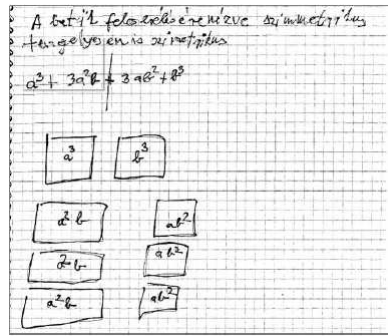 A betűk felcserélésére nézve szimmetrikus
tengelyesen is szimetrikus
a³ + 3a²b + 3ab² + b³
a³ b³
a²b ab²
a²b ab²
a²b ab²